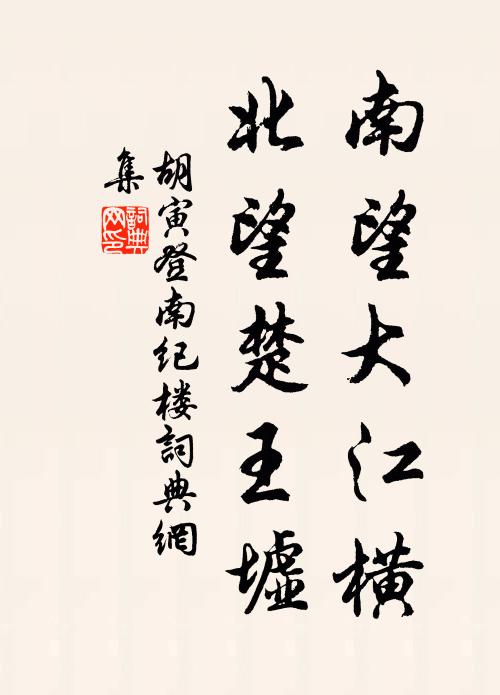 南望大江橫
北望楚王墟
胡寅登南纪楼詞典網
集
詞典
网印